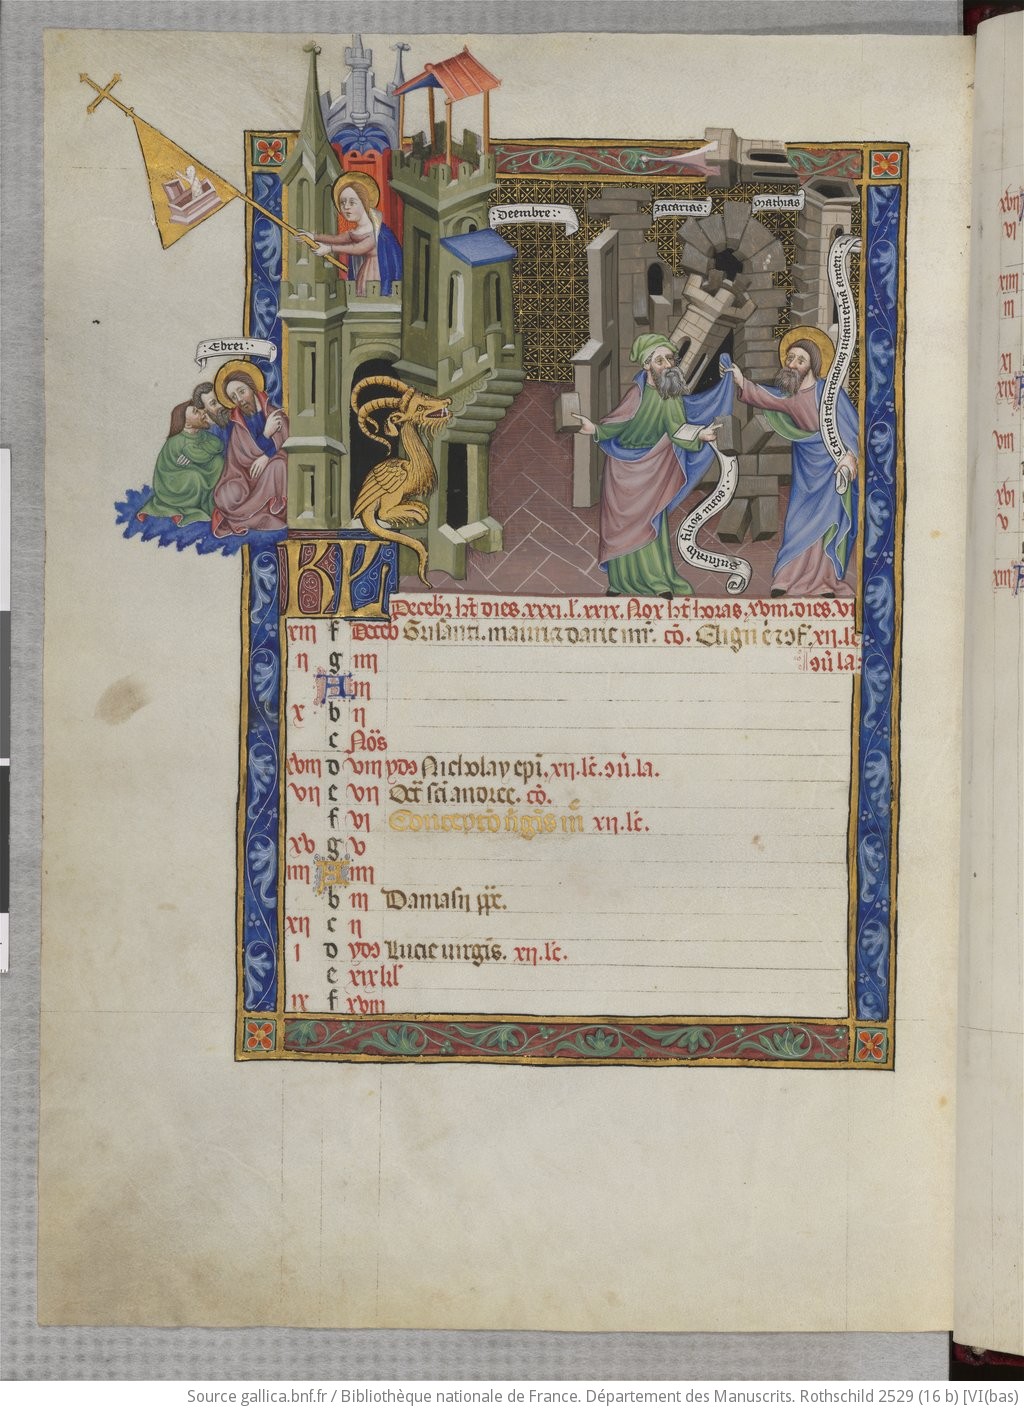 :Deembre:
:zacarias:
:Mathias
:Carnis resurrectionez vitam eternã amen:
:Ebrei:
Suscitabo filios tuos:
KL
Decēbr hт̄ dies. xxxi. l̃. xxix. Nox hт̄ horas. xviii. dies. vi
xiii f Deceb Grisanti. mauri ⁊ darie mr̃. cō. Eligii ē ⁊ ɔf. xii. lc̄
ɔm̃ la:
ii g iiii
A iii
x b ii
c Nōs
xviii d viii ydɔ Nicholay epī. xii. lc̄. ɔm̃. la.
vii e vii Oct̄ scī andree. cō.
f vi Conceptō v̓gīs m̄ xii. lc̄.
xv g v
iiii A iiii
b iii Damasii pp̄.
xii c ii
i d ydɔ Lucie virgīs. xii. lc̄.
e xix kl̃
ix f xviii
xvi
vi
xiiii
iii
xi
xix
viii
xvi
v
xiii
Source gallica.bnf.fr / Bibliothèque nationale de France. Département des Manuscrits. Rothschild 2529 (16 b) [VI(bas)